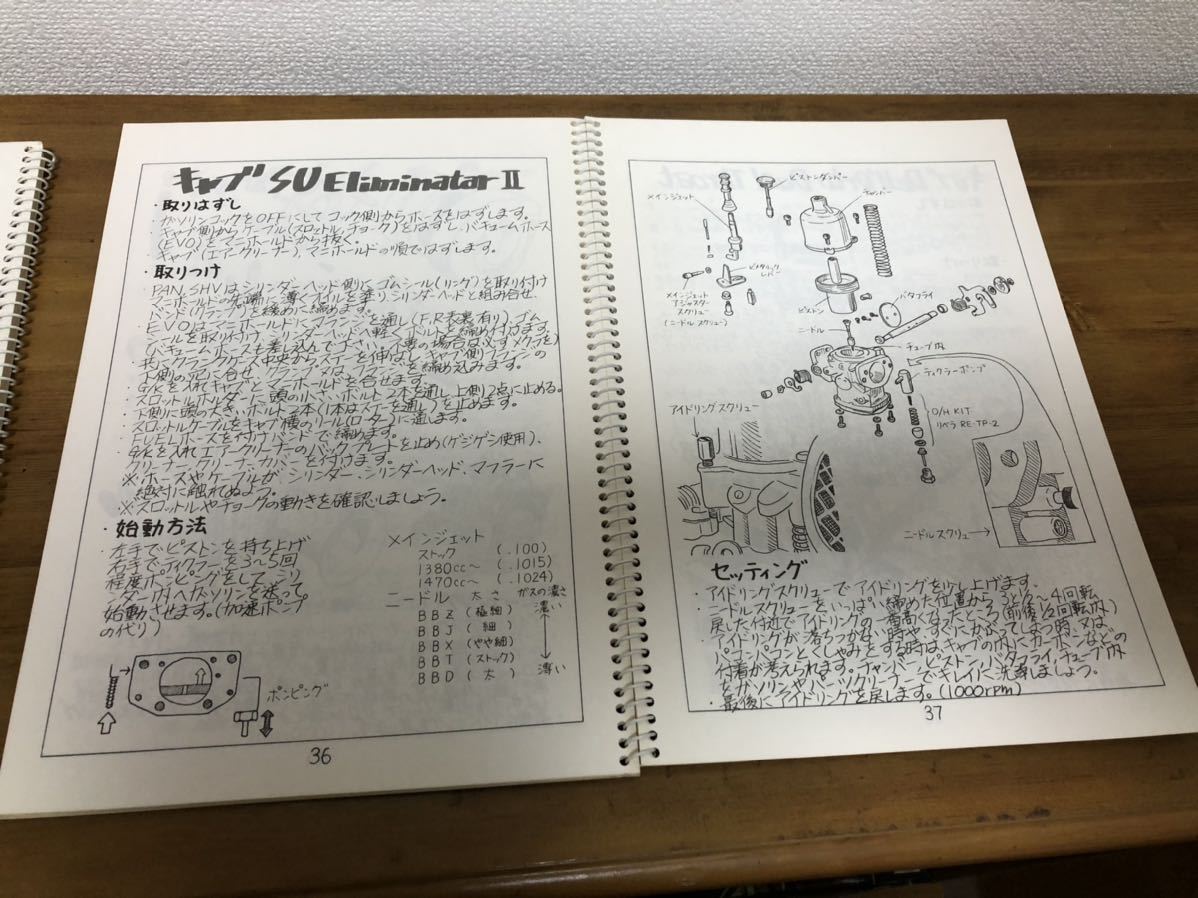 キャブ SU Eliminator II
・取りはずし
・ガソリンコックをOFFにしてコック側からホースをはずします。
・キャブ側からケーブル(スロットル,チョーク)をはずし、バキュームホース
(EVO)をマニホールドから抜く。
・キャブ(エアークリーナー)、マニホールドの順ではずします。
・取りつけ
・PAN、SHVはシリンダーヘッド側にゴムシール(リング)を取り付け
マニホールドの先端に薄くオイルを塗り、シリンダーヘッドと組み合せ、
バンド(クランプ)を緩めに締めます。
・EVOはマニホールドにフランジを通し(F,R表裏有り)、ゴム
シールを取り付け、シリンダーヘッドへ軽くボルトを締め付けます。
(バキュームホースも差し込んで下さい。不要の場合は必ずメクラを)
の穴に合せ、クランプ又はフランジを締め込みます。
・G/Kを入れキャブとマニホールドを合せます。
・スロットルホルダーに頭の小さいボルト2本を通し上側2点に止める。
・下側に頭の大きいボルト2本(1本はステーを通し)を止めます。
・スロットルケーブルをキャブ横のリール(ローター)に通します。
・FUELホースを付けバンドで締めます。
・G/Kを入れエアークリーナーのバックプレートを止め(ゲジゲジ使用)、
クリーナー、クリーナーカバーを付けます。
※ホースやケーブルが、シリンダー、シリンダーヘッド、マフラーに
絶対に触れぬよう。
※スロットルやチョークの動きを確認しましょう。
・始動方法
・左手でピストンを持ち上げ
右手でティクラーを3~5回
程度ポンピングをしてシリン
ダー内へガソリンを送って
始動させます。(加速ポンプ
の代り)
メインジェット
ストック (.100)
1380cc~ (.1015)
1470cc~ (.1024)
ニードル 太さ ガスの濃さ
BBZ (極細) 濃い
BBJ (細)
BBX (やや細)
BBT (ストック)
BBD (太) 薄い
ポンピング
36
ピストンダンパー
メインジェット
チャンバー
ピメタリック
レバー
メインジェット
アジャスター
スクリュー
(ニードルスクリュー)
ピストン
バタフライ
ニードル
チューブ内
ティクラーポンプ
アイドリングスクリュー
O/H KIT
リベラ RE-TP-2
ニードルスクリュー
セッティング
・アイドリングスクリューでアイドリングを少し上げます。
・ニードルスクリューをいっぱい締めた位置から3と1/2~4回転
戻した付近でアイドリングの一番高くなったところ(前後1/2回転内)
・アイドリングが落ちつかない時や、すぐにかぶってしまう時、又は
パコンパコンとくしゃみをする時は、キャブの内にカーボンなどの
付着が考えられます。チャンバー、ピストン、バタフライ、チューブ内
をガソリンやパーツクリーナーでキレイに洗浄しましょう。
・最後にアイドリングを戻します。(1000rpm)
37